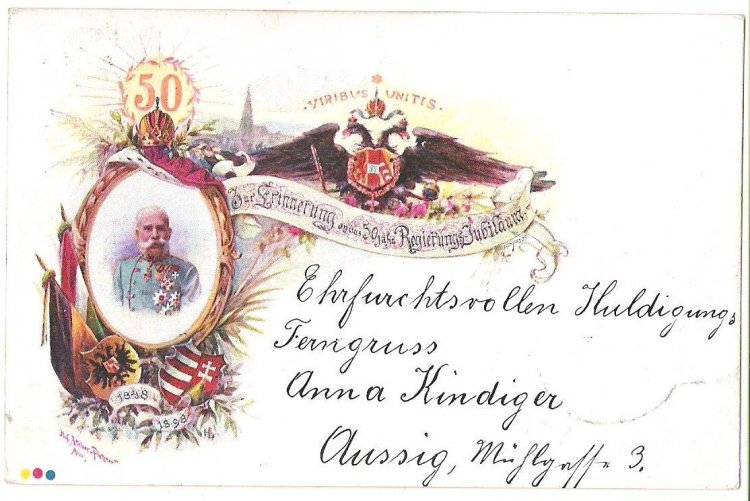 50
VIRIBUS UNITIS
Zur Erinnerung an das 50jähr. Regierungs-Jubiläum.
1848
1898
Ehrfurchtsvollen Huldigungs
Ferngruss
Anna Kindiger
Aussig, Mühlgasse 3.